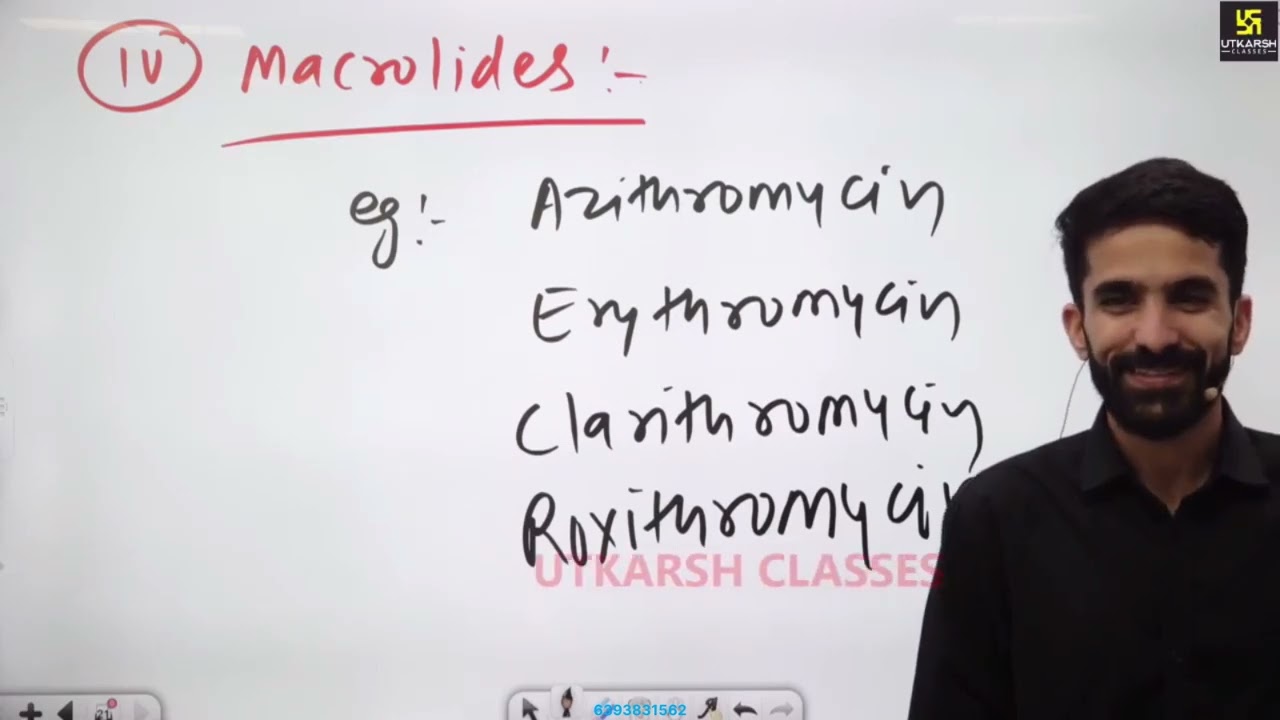 IV Macrolides :-
UTKARSH
CLASSES
eg :- Azithromycin
Erythromycin
Clarithromycin
Roxithromycin
UTKARSH CLASSES
21
6393831562